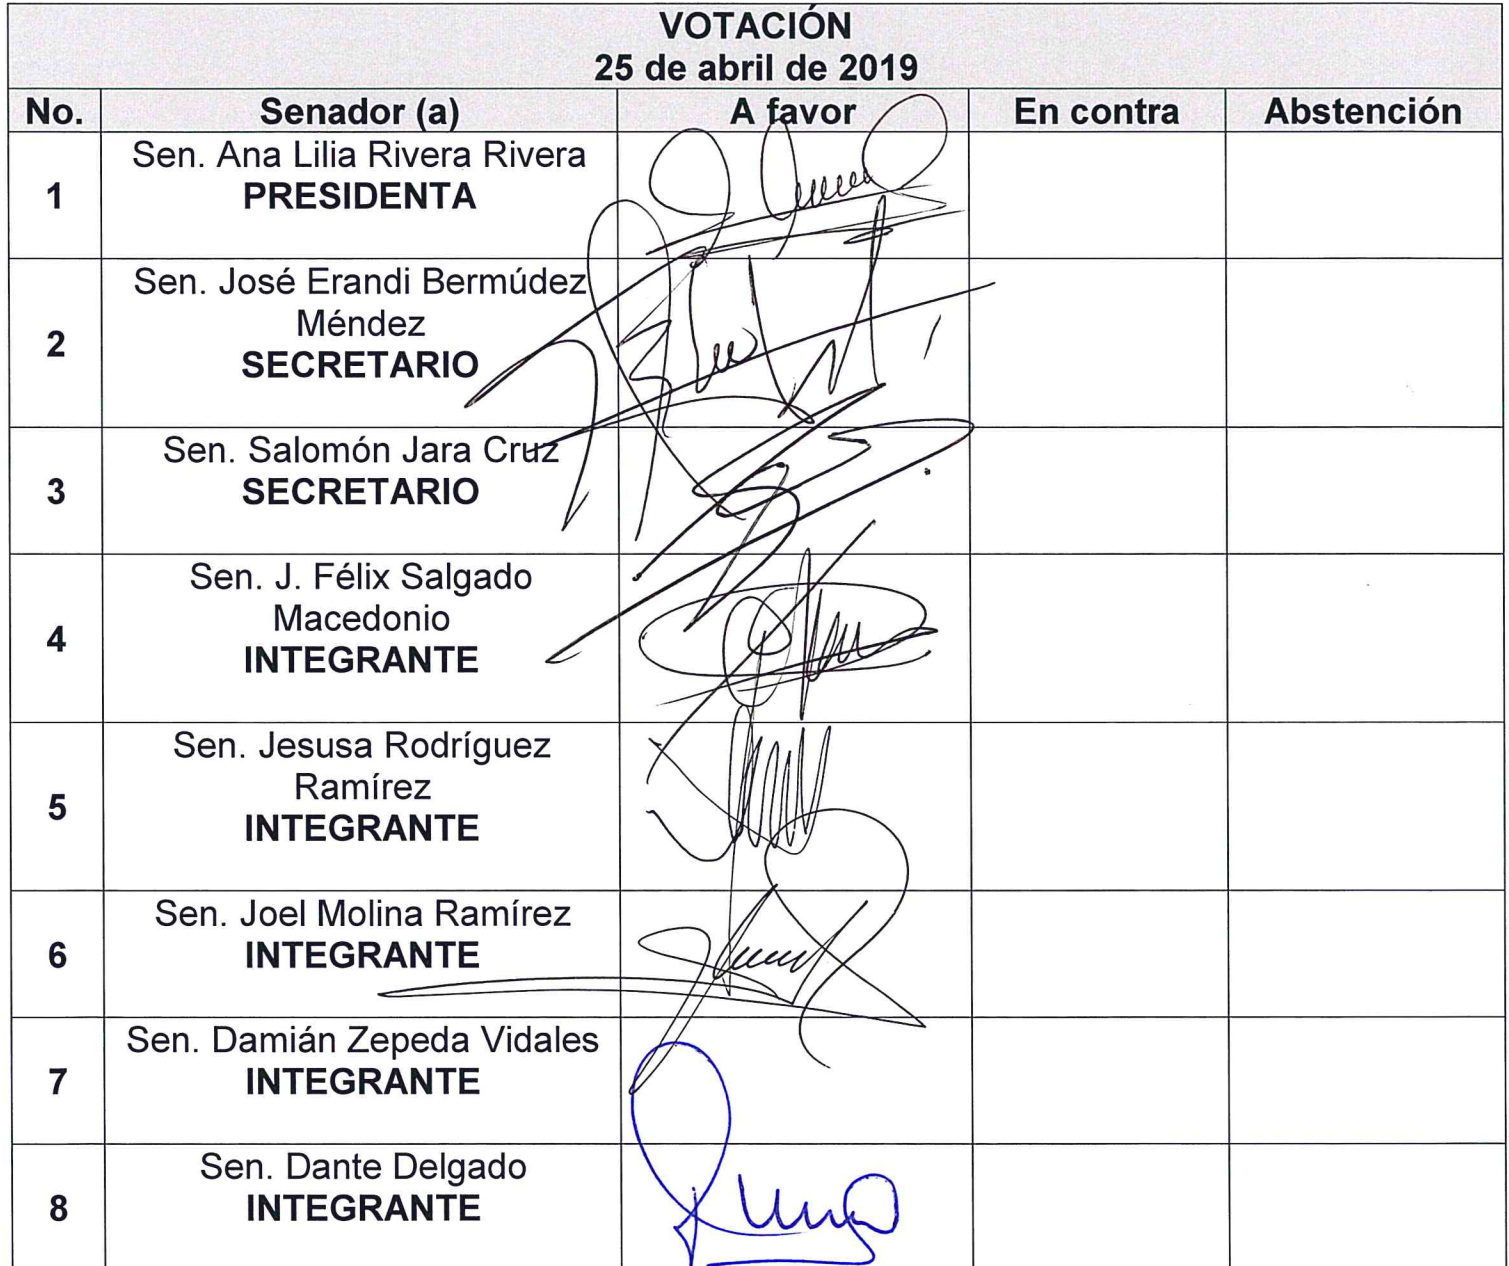 VOTACIÓN
25 de abril de 2019
No. Senador (a) A favor En contra Abstención
1 Sen. Ana Lilia Rivera Rivera
PRESIDENTA
2 Sen. José Erandi Bermúdez
Méndez
SECRETARIO
3 Sen. Salomón Jara Cruz
SECRETARIO
4 Sen. J. Félix Salgado
Macedonio
INTEGRANTE
5 Sen. Jesusa Rodríguez
Ramírez
INTEGRANTE
6 Sen. Joel Molina Ramírez
INTEGRANTE
7 Sen. Damián Zepeda Vidales
INTEGRANTE
8 Sen. Dante Delgado
INTEGRANTE